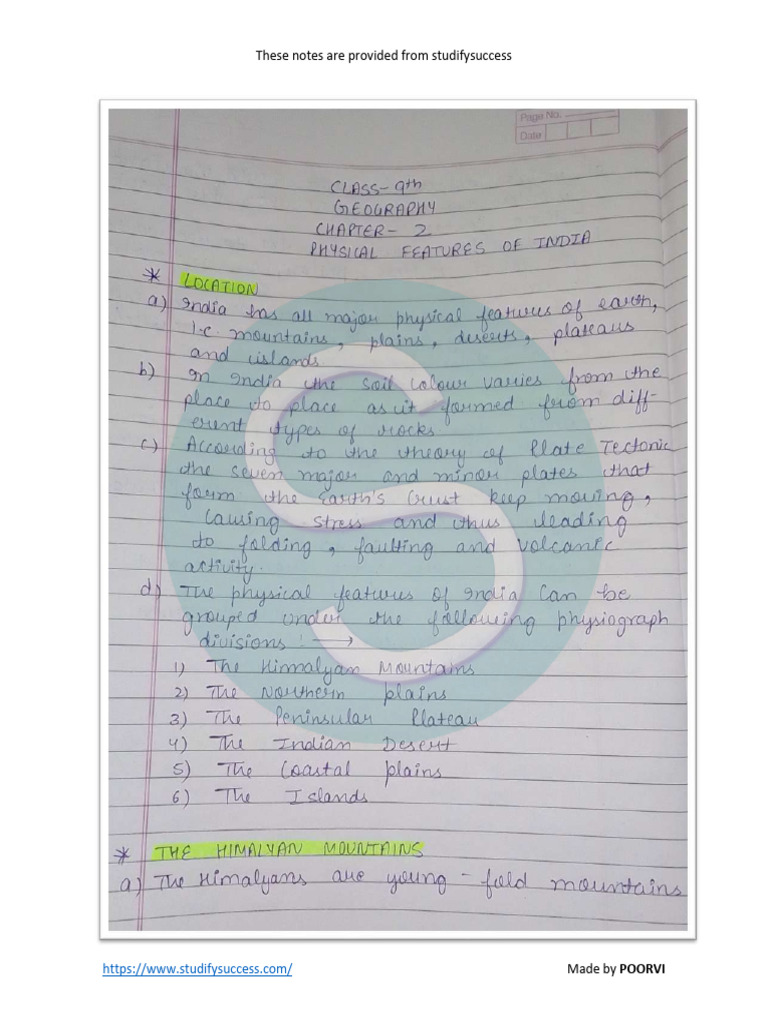 These notes are provided from studifysuccess
Page No.
Date
CLASS-9th
GEOGRAPHY
CHAPTER- 2
PHYSICAL FEATURES OF INDIA
* LOCATION
a) India has all major physical features of earth,
i.e. mountains, plains, deserts, plateaus
and islands
b) In India the soil colour varies from the
place to place as it formed from diff-
erent types of rocks.
c) According to the theory of Plate Tectonic
the seven major and minor plates that
form the Earth's Crust keep moving,
causing stress and thus leading
to folding, faulting and volcanic
activity.
d) The physical features of India can be
grouped under the following physiograph
divisions :→
1) The Himalyan Mountains
2) The Northern plains
3) The Peninsular Plateau
4) The Indian Desert
5) The Coastal plains
6) The Islands
* THE HIMALYAN MOUNTAINS
a) The Himalyans are young - fold mountains
https://www.studifysuccess.com/
Made by POORVI